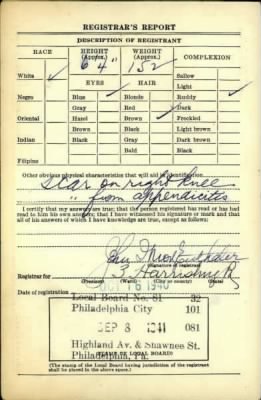 REGISTRAR'S REPORT
DESCRIPTION OF REGISTRANT
RACE HEIGHT (Approx.) WEIGHT (Approx.) COMPLEXION
6' 4" 152
White ✓ Sallow
EYES HAIR Light
Negro Blue ✓ Blonde Ruddy ✓
Gray Red ✓ Dark
Oriental Hazel Brown Freckled
Brown Black Light brown
Indian Black Gray Dark brown
Bald Black
Filipino
Other obvious physical characteristics that will aid in identification
Scar on right knee
" from appendicitis
I certify that my answers are true; that the person registered has read or has had
read to him his own answers; that I have witnessed his signature or mark and that
all of his answers of which I have knowledge are true, except as follows:
(Signature of registrar)
Registrar for
(Precinct) (Ward) (City or county) (State)
Date of registration OCT 16 1940
Local Board No. 81 32
Philadelphia City 101
SEP 8 1941 081
Highland Av. & Shawnee St.
Philadelphia, Pa.
(STAMP OF LOCAL BOARD)
(The stamp of the Local Board having jurisdiction of the registrant
shall be placed in the above space.)